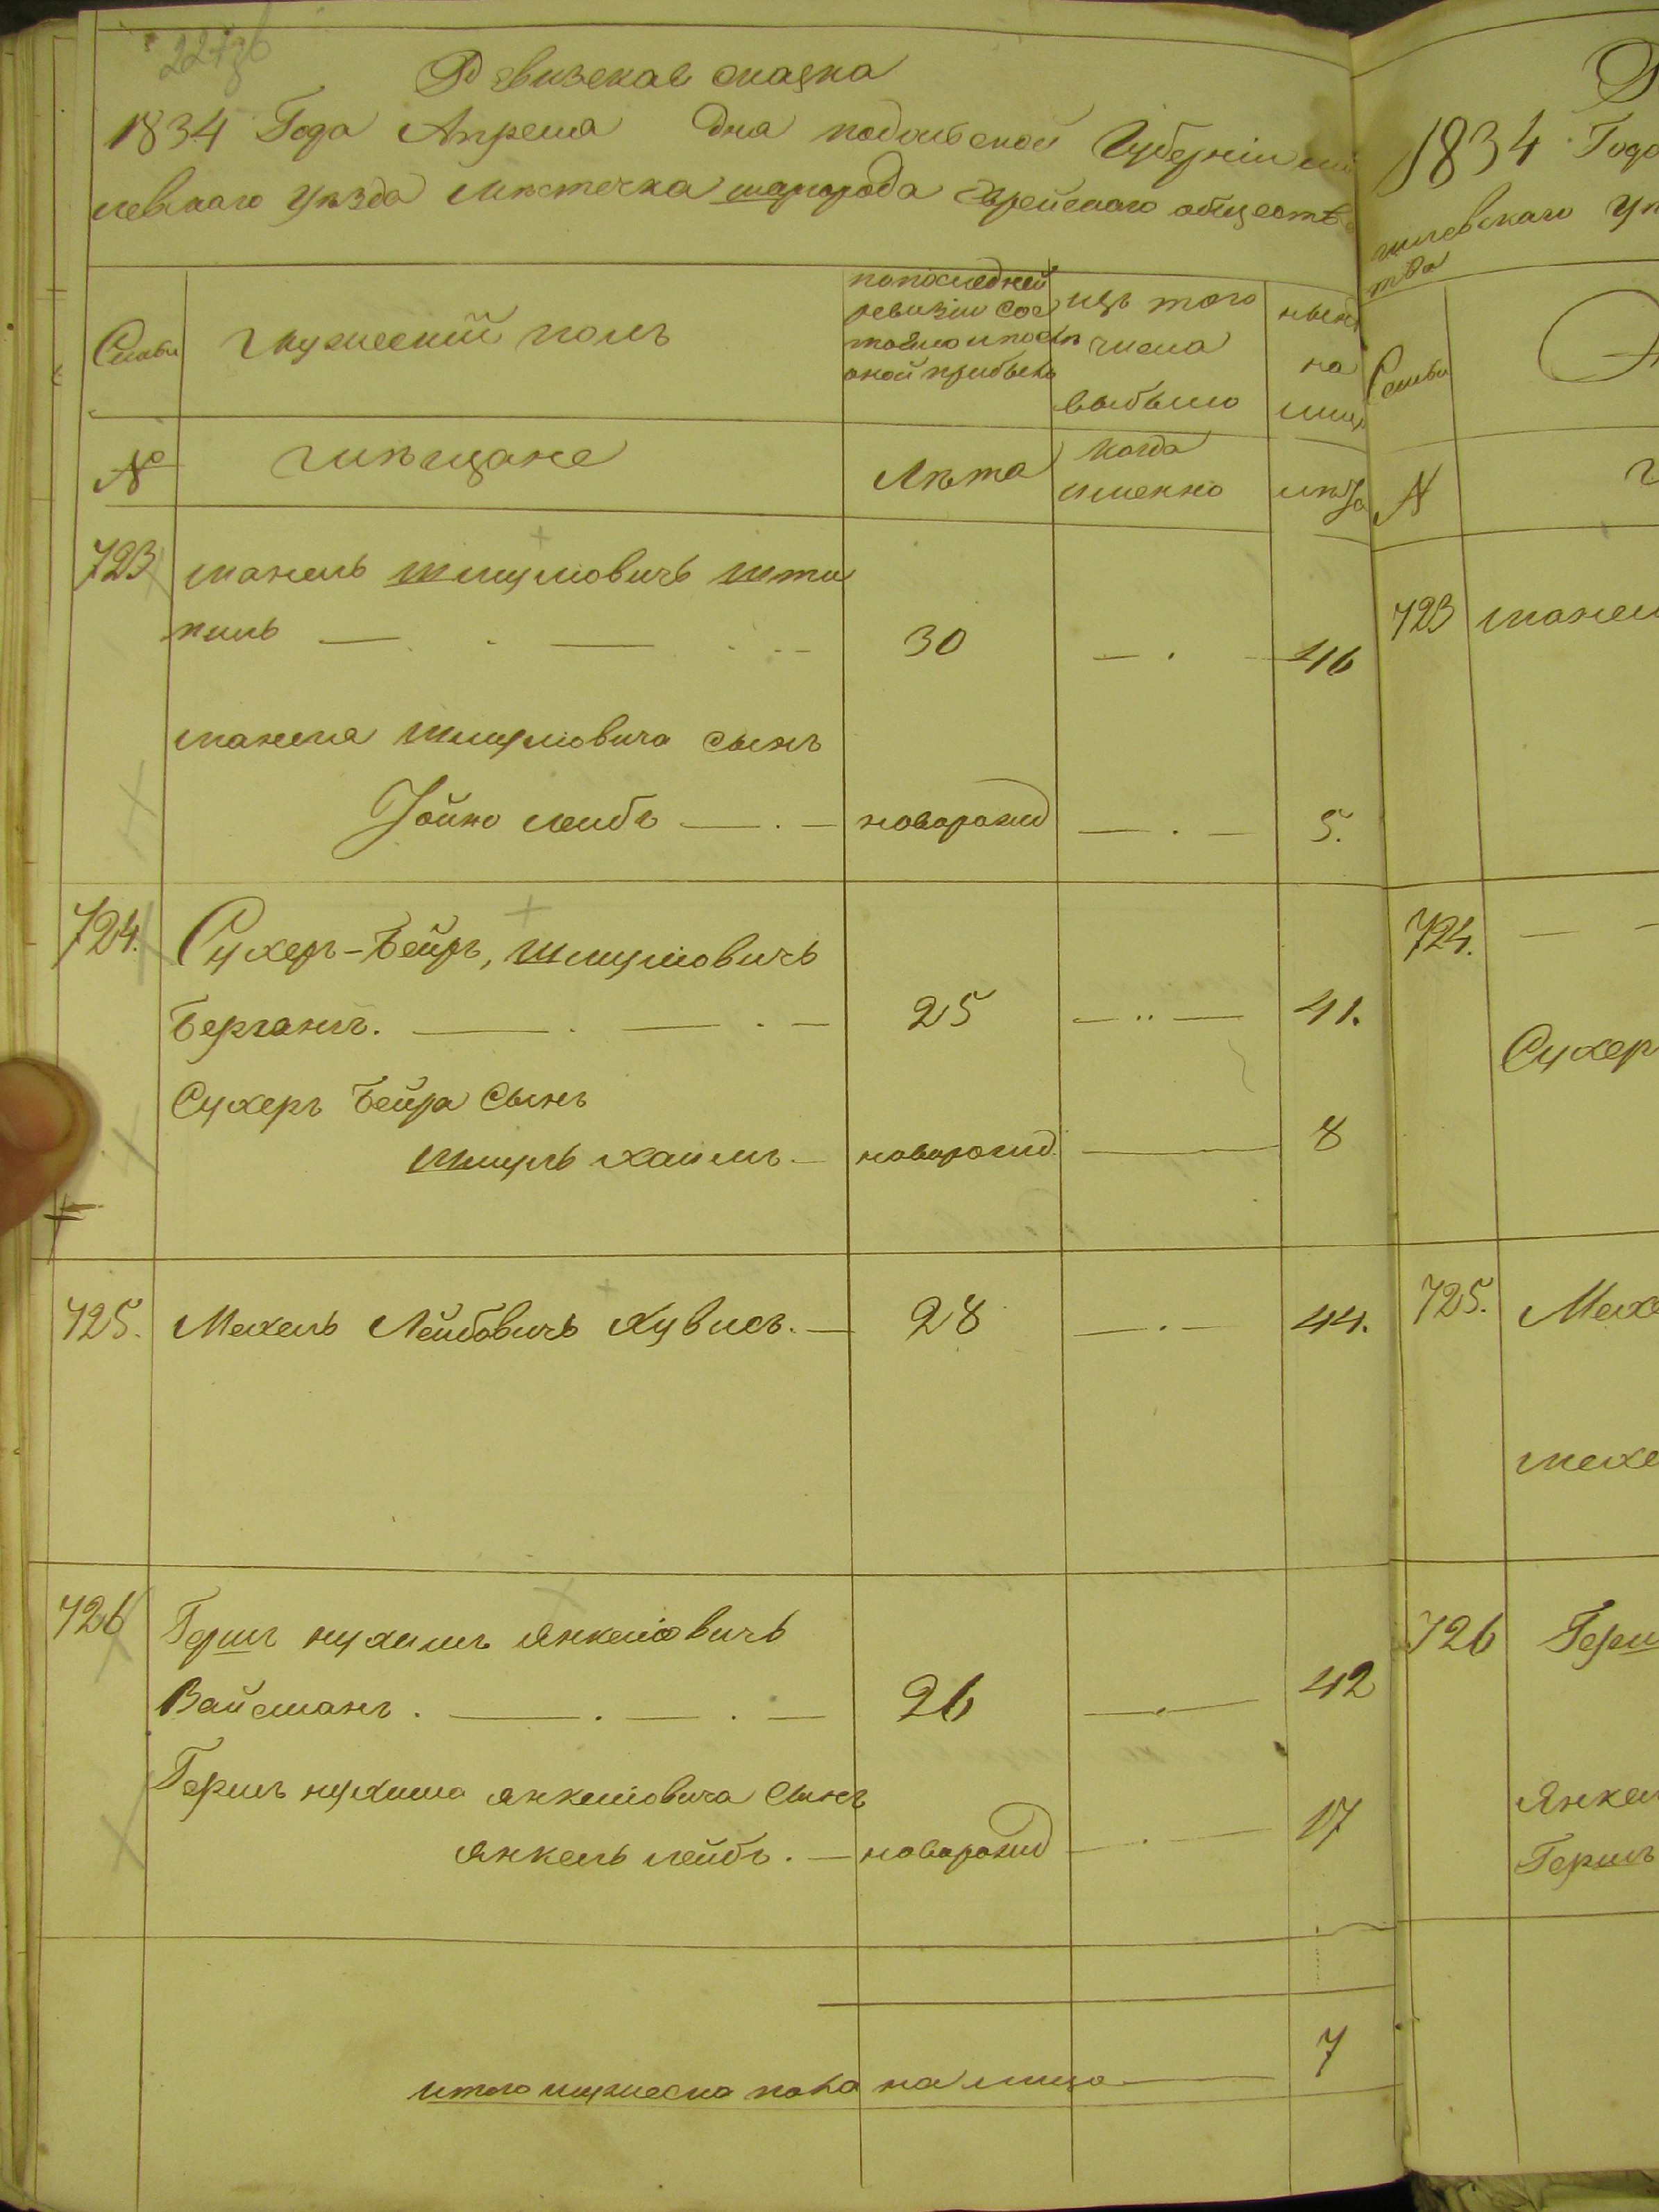 Ревизская сказка
1834 Года Апреля Дня подольской Губерніи мо
левскаго уѣзда мѣстечка шаргорода Еврейскаго обществ
Семьи
мужеский полъ
по последней
ревизіи сос
тояло и посл
оной прибыло
изъ того
числа
выбыло
ныне
на
лицо
№
мѣщане
Лѣта
когда
именно
лѣта
723
манель шмулювичь шти
30
46
манеля шмулювича сынъ
Іойно лейбъ
новорожд
5.
724.
Сухеръ-Бейръ, шмулювичь
25
41.
Сухеръ Бейра сынъ
шмуль хаимъ
новорожд.
8
725.
Мехель Лейбовичь Хувисъ.
28
44.
726
Гершъ нухимъ янкелювичь
Вайсманъ.
26
42
Гершъ нухима янкелювича сынъ
янкель лейбъ.
новорожд
17
итого мужеска пола на лицо
7
1834 Года
гилевскаго уѣ
тва
Семьи
№
723 манел
724.
Сухер
725. Мехе
мехе
726 Герш
янкел
Гершъ